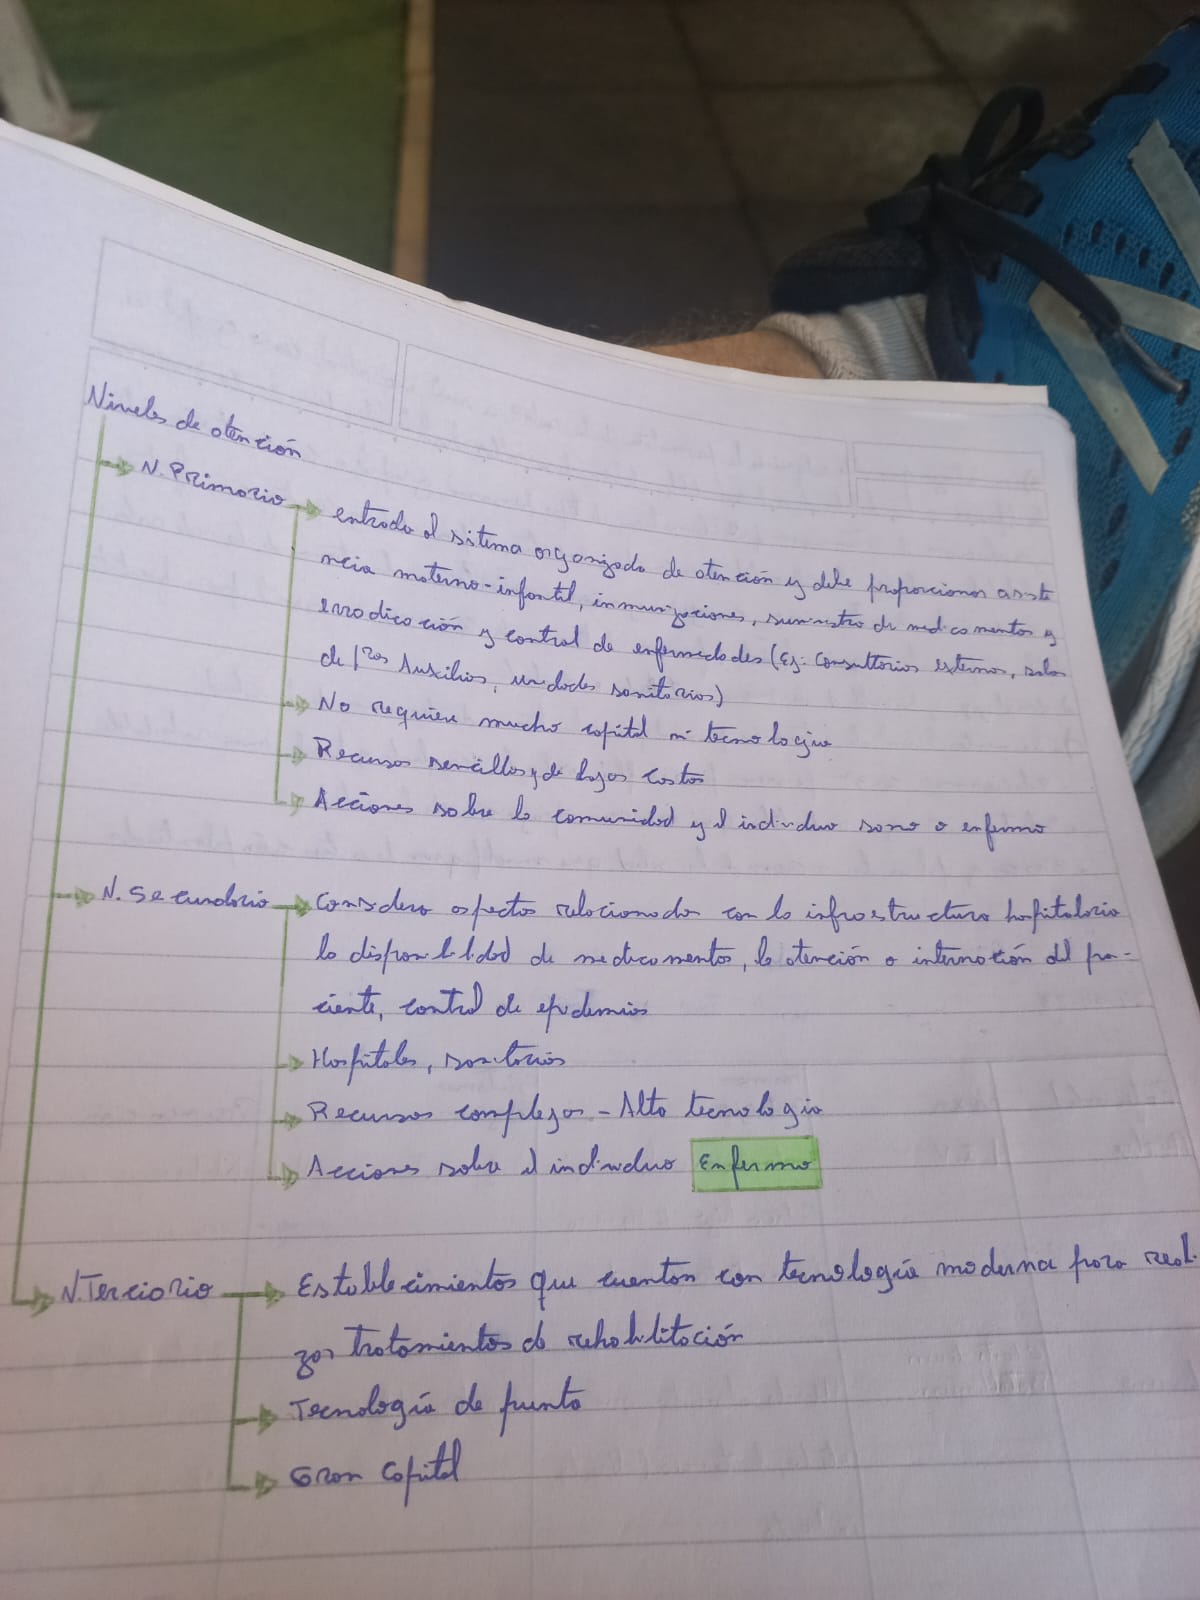 Niveles de atención
N. Primario → entrada al sistema organizado de atención y debe proporcionar asiste
ncia materno-infantil, inmunizaciones, suministro de medicamentos y
erradicación y control de enfermedades (Ej: Consultorios externos, salas
de 1ros Auxilios, unidades sanitarias)
→ No requiere mucho capital ni tecnologia
→ Recursos sencillos y de bajos costos
→ Acciones sobre la comunidad y el individuo sano o enfermo
→ N. Secundario → Considera aspectos relacionados con la infraestructura hospitalaria
la disponibilidad de medicamentos, la atención o internación del pa-
ciente, control de epidemias
→ Hospitales, sanitarios
→ Recursos complejos - Alta tecnologia
→ Acciones sobre el individuo Enfermo
→ N. Terciario → Establecimientos que cuentan con tecnología moderna para reali-
zar tratamientos de rehabilitación
→ Tecnología de punta
→ Gran Capital